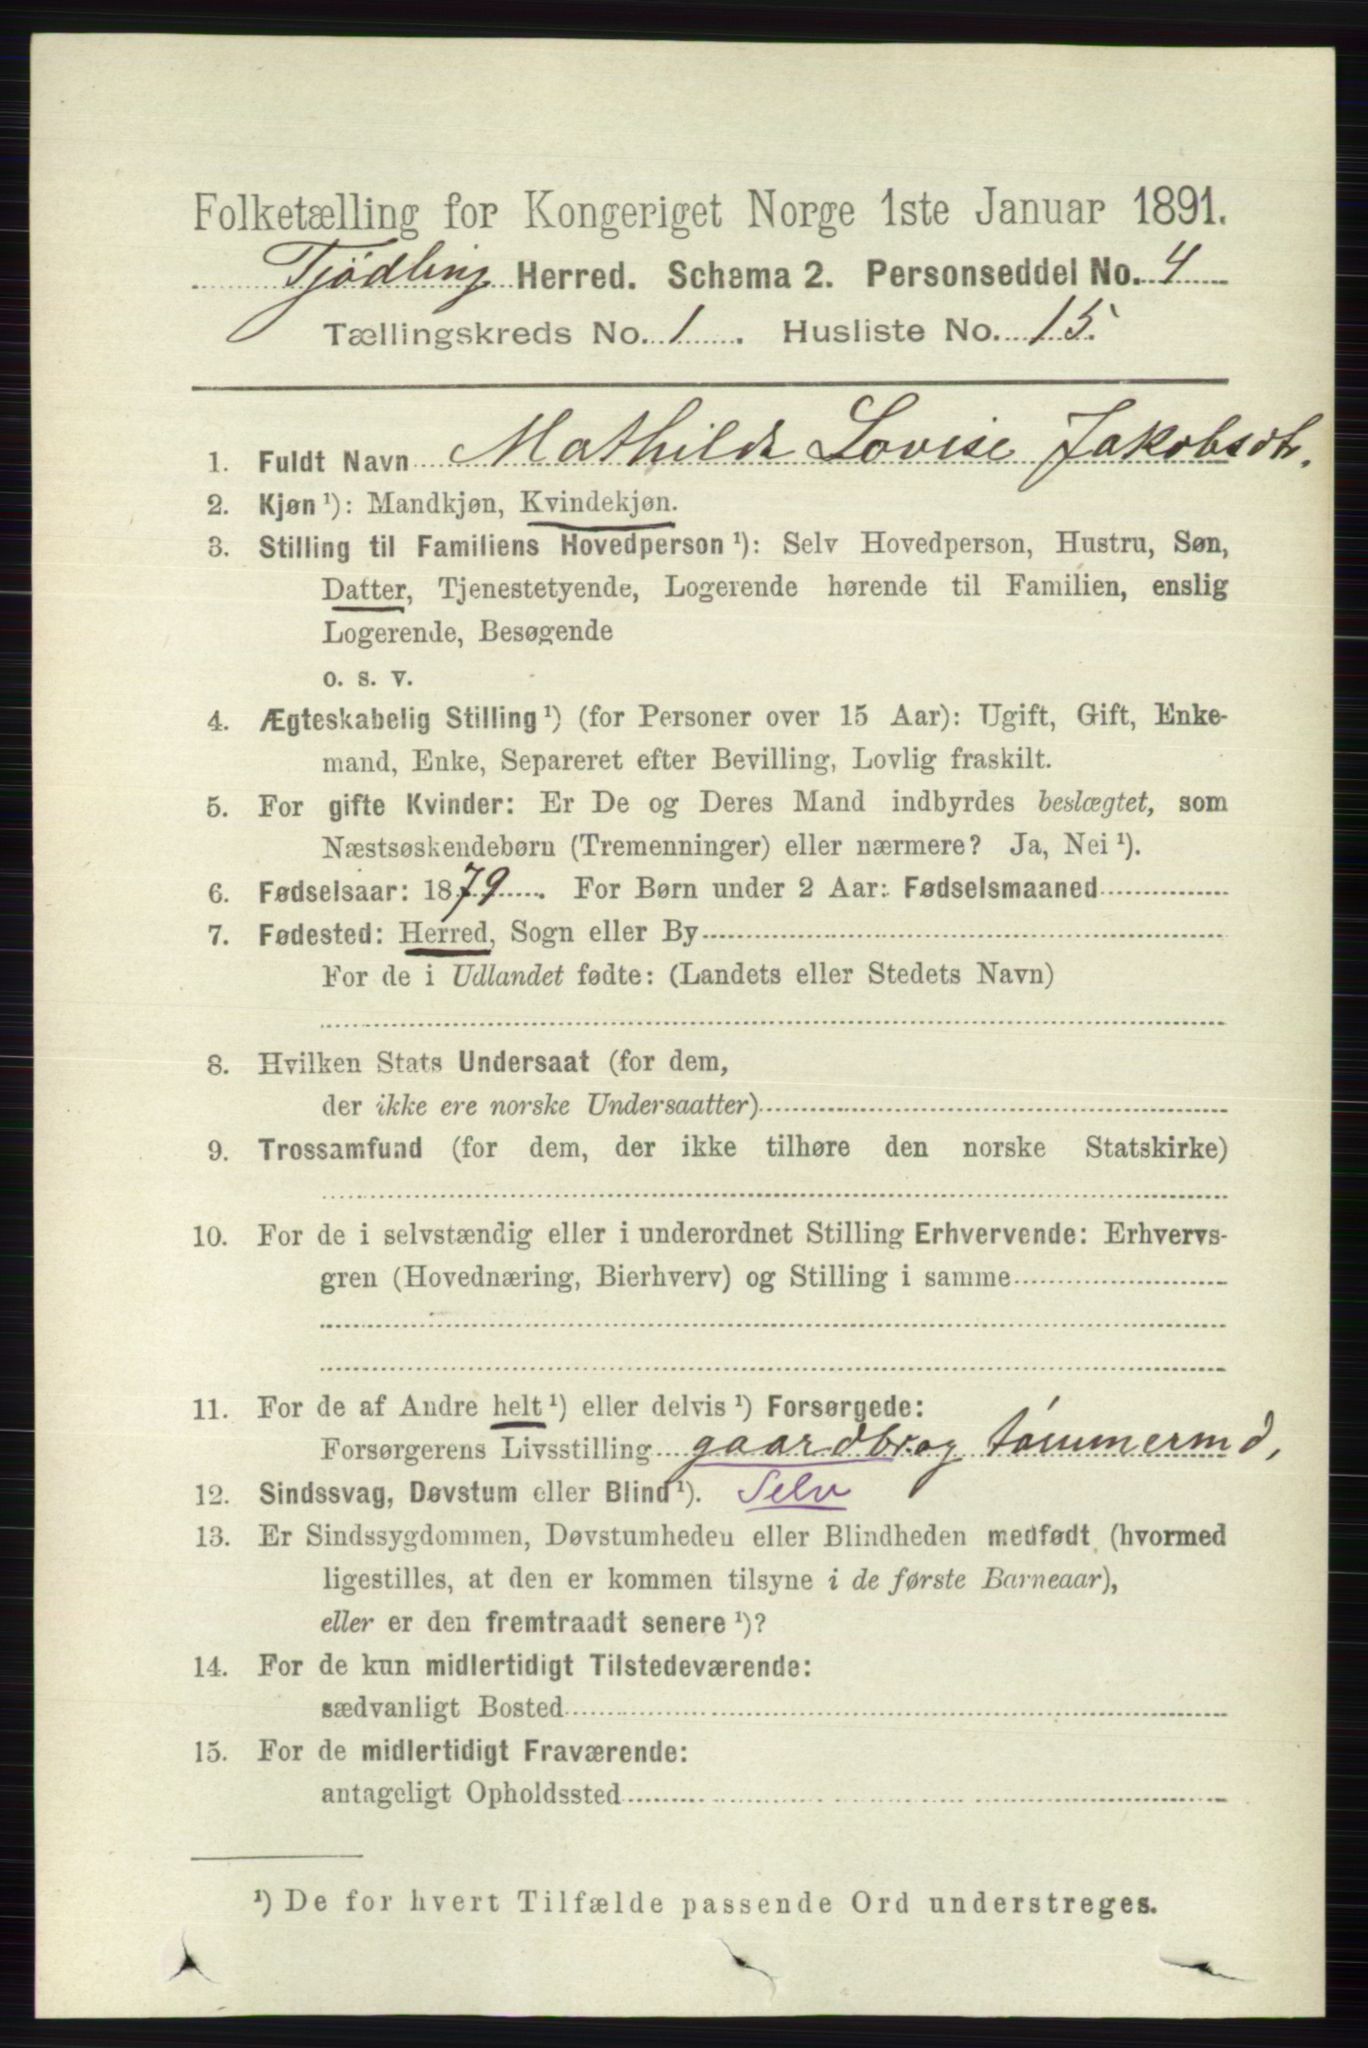 Folketælling for Kongeriget Norge 1ste Januar 1891.
Tjødling Herred. Schema 2. Personseddel No. 4
Tællingskreds No. 1. Husliste No. 15.
1. Fuldt Navn Mathilde Lovise Jakobsdtr.
2. Kjøn ¹): Mandkjøn, Kvindekjøn.
3. Stilling til Familiens Hovedperson ¹): Selv Hovedperson, Hustru, Søn,
Datter, Tjenestetyende, Logerende hørende til Familien, enslig
Logerende, Besøgende
o. s. v.
4. Ægteskabelig Stilling ¹) (for Personer over 15 Aar): Ugift, Gift, Enke-
mand, Enke, Separeret efter Bevilling, Lovlig fraskilt.
5. For gifte Kvinder: Er De og Deres Mand indbyrdes beslægtet, som
Næstsøskendebørn (Tremenninger) eller nærmere? Ja, Nei ¹).
6. Fødselsaar: 1879. For Børn under 2 Aar: Fødselsmaaned
7. Fødested: Herred, Sogn eller By
For de i Udlandet fødte: (Landets eller Stedets Navn)
8. Hvilken Stats Undersaat (for dem,
der ikke ere norske Undersaatter)
9. Trossamfund (for dem, der ikke tilhøre den norske Statskirke)
10. For de i selvstændig eller i underordnet Stilling Erhvervende: Erhvervs-
gren (Hovednæring, Bierhverv) og Stilling i samme
11. For de af Andre helt ¹) eller delvis ¹) Forsørgede:
Forsørgerens Livsstilling gaardbr. og tømmermd,
12. Sindssvag, Døvstum eller Blind ¹). Selv
13. Er Sindssygdommen, Døvstumheden eller Blindheden medfødt (hvormed
ligestilles, at den er kommen tilsyne i de første Barneaar),
eller er den fremtraadt senere ¹)?
14. For de kun midlertidigt Tilstedeværende:
sædvanligt Bosted
15. For de midlertidigt Fraværende:
antageligt Opholdssted
¹) De for hvert Tilfælde passende Ord understreges.